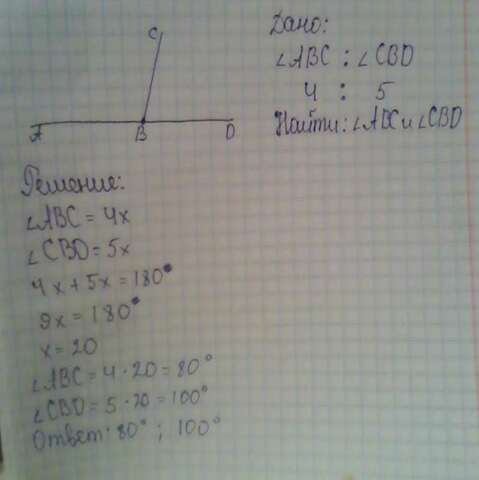 C
A B D
Дано:
∠ABC : ∠CBD
4 : 5
Найти: ∠ABC и ∠CBD
Решение:
∠ABC = 4x
∠CBD = 5x
4x + 5x = 180°
9x = 180°
x = 20
∠ABC = 4 · 20 = 80°
∠CBD = 5 · 20 = 100°
Ответ: 80° ; 100°